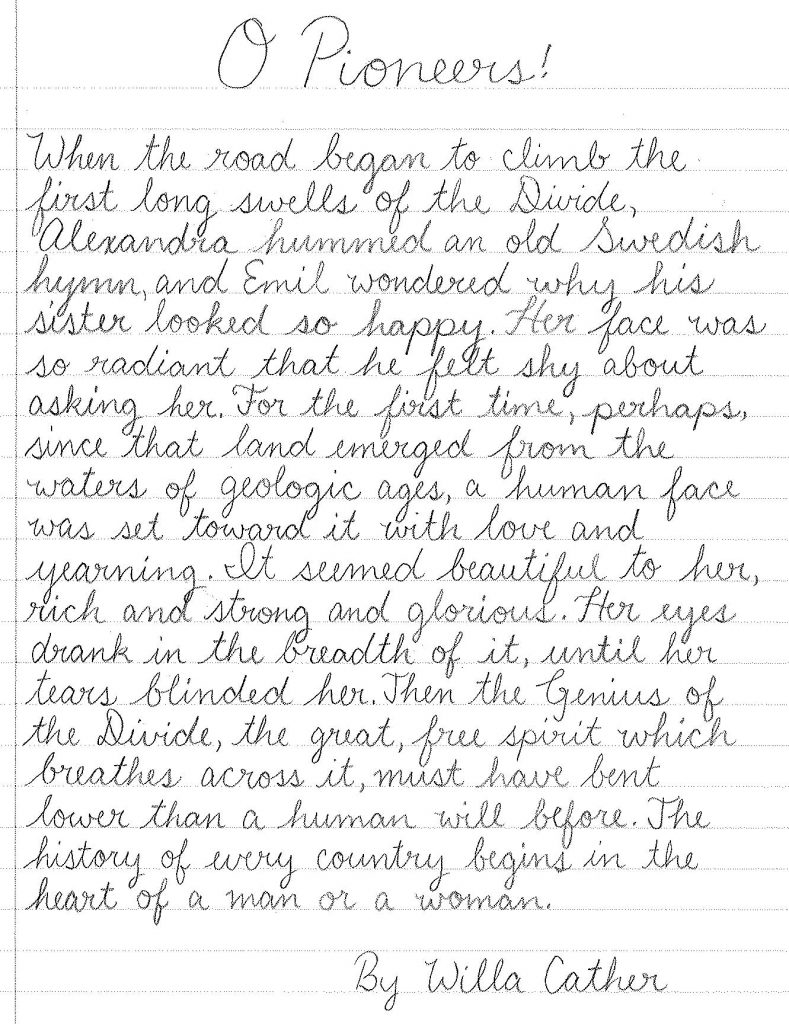 O Pioneers!
When the road began to climb the
first long swells of the Divide,
Alexandra hummed an old Swedish
hymn, and Emil wondered why his
sister looked so happy. Her face was
so radiant that he felt shy about
asking her. For the first time, perhaps,
since that land emerged from the
waters of geologic ages, a human face
was set toward it with love and
yearning. It seemed beautiful to her,
rich and strong and glorious. Her eyes
drank in the breadth of it, until her
tears blinded her. Then the Genius of
the Divide, the great, free spirit which
breathes across it, must have bent
lower than a human will before. The
history of every country begins in the
heart of a man or a woman.
By Willa Cather